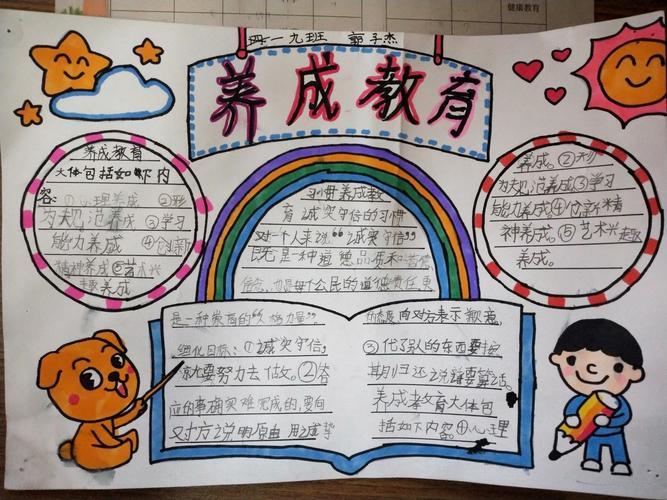 健康教育
四一九班 郭子杰
养成教育
养成教育
大体包括如下内
容:①心理养成 ②形
为规范养成 ③学习
能力养成 ④创新
精神养成⑤艺术兴
趣养成
习惯养成教
育诚实守信的习惯
对一个人来说“诚实守信”
既是一种道德品质和道德
信念,也是每个公民的道德责任,更
是一种崇高的“人格力量”。
细化目标:①诚实守信,
就要努力去做。②答
应的事确实难完成的,要向
对方说明原由,用诚挚
的态度向对方表示歉意,
③代了别的东西要按
期归还说话要算话。
养成教育大体包
括如下内容。①心理
养成。②形
为规范养成③学习
能力养成④创新精
神养成。⑤艺术兴趣
养成。